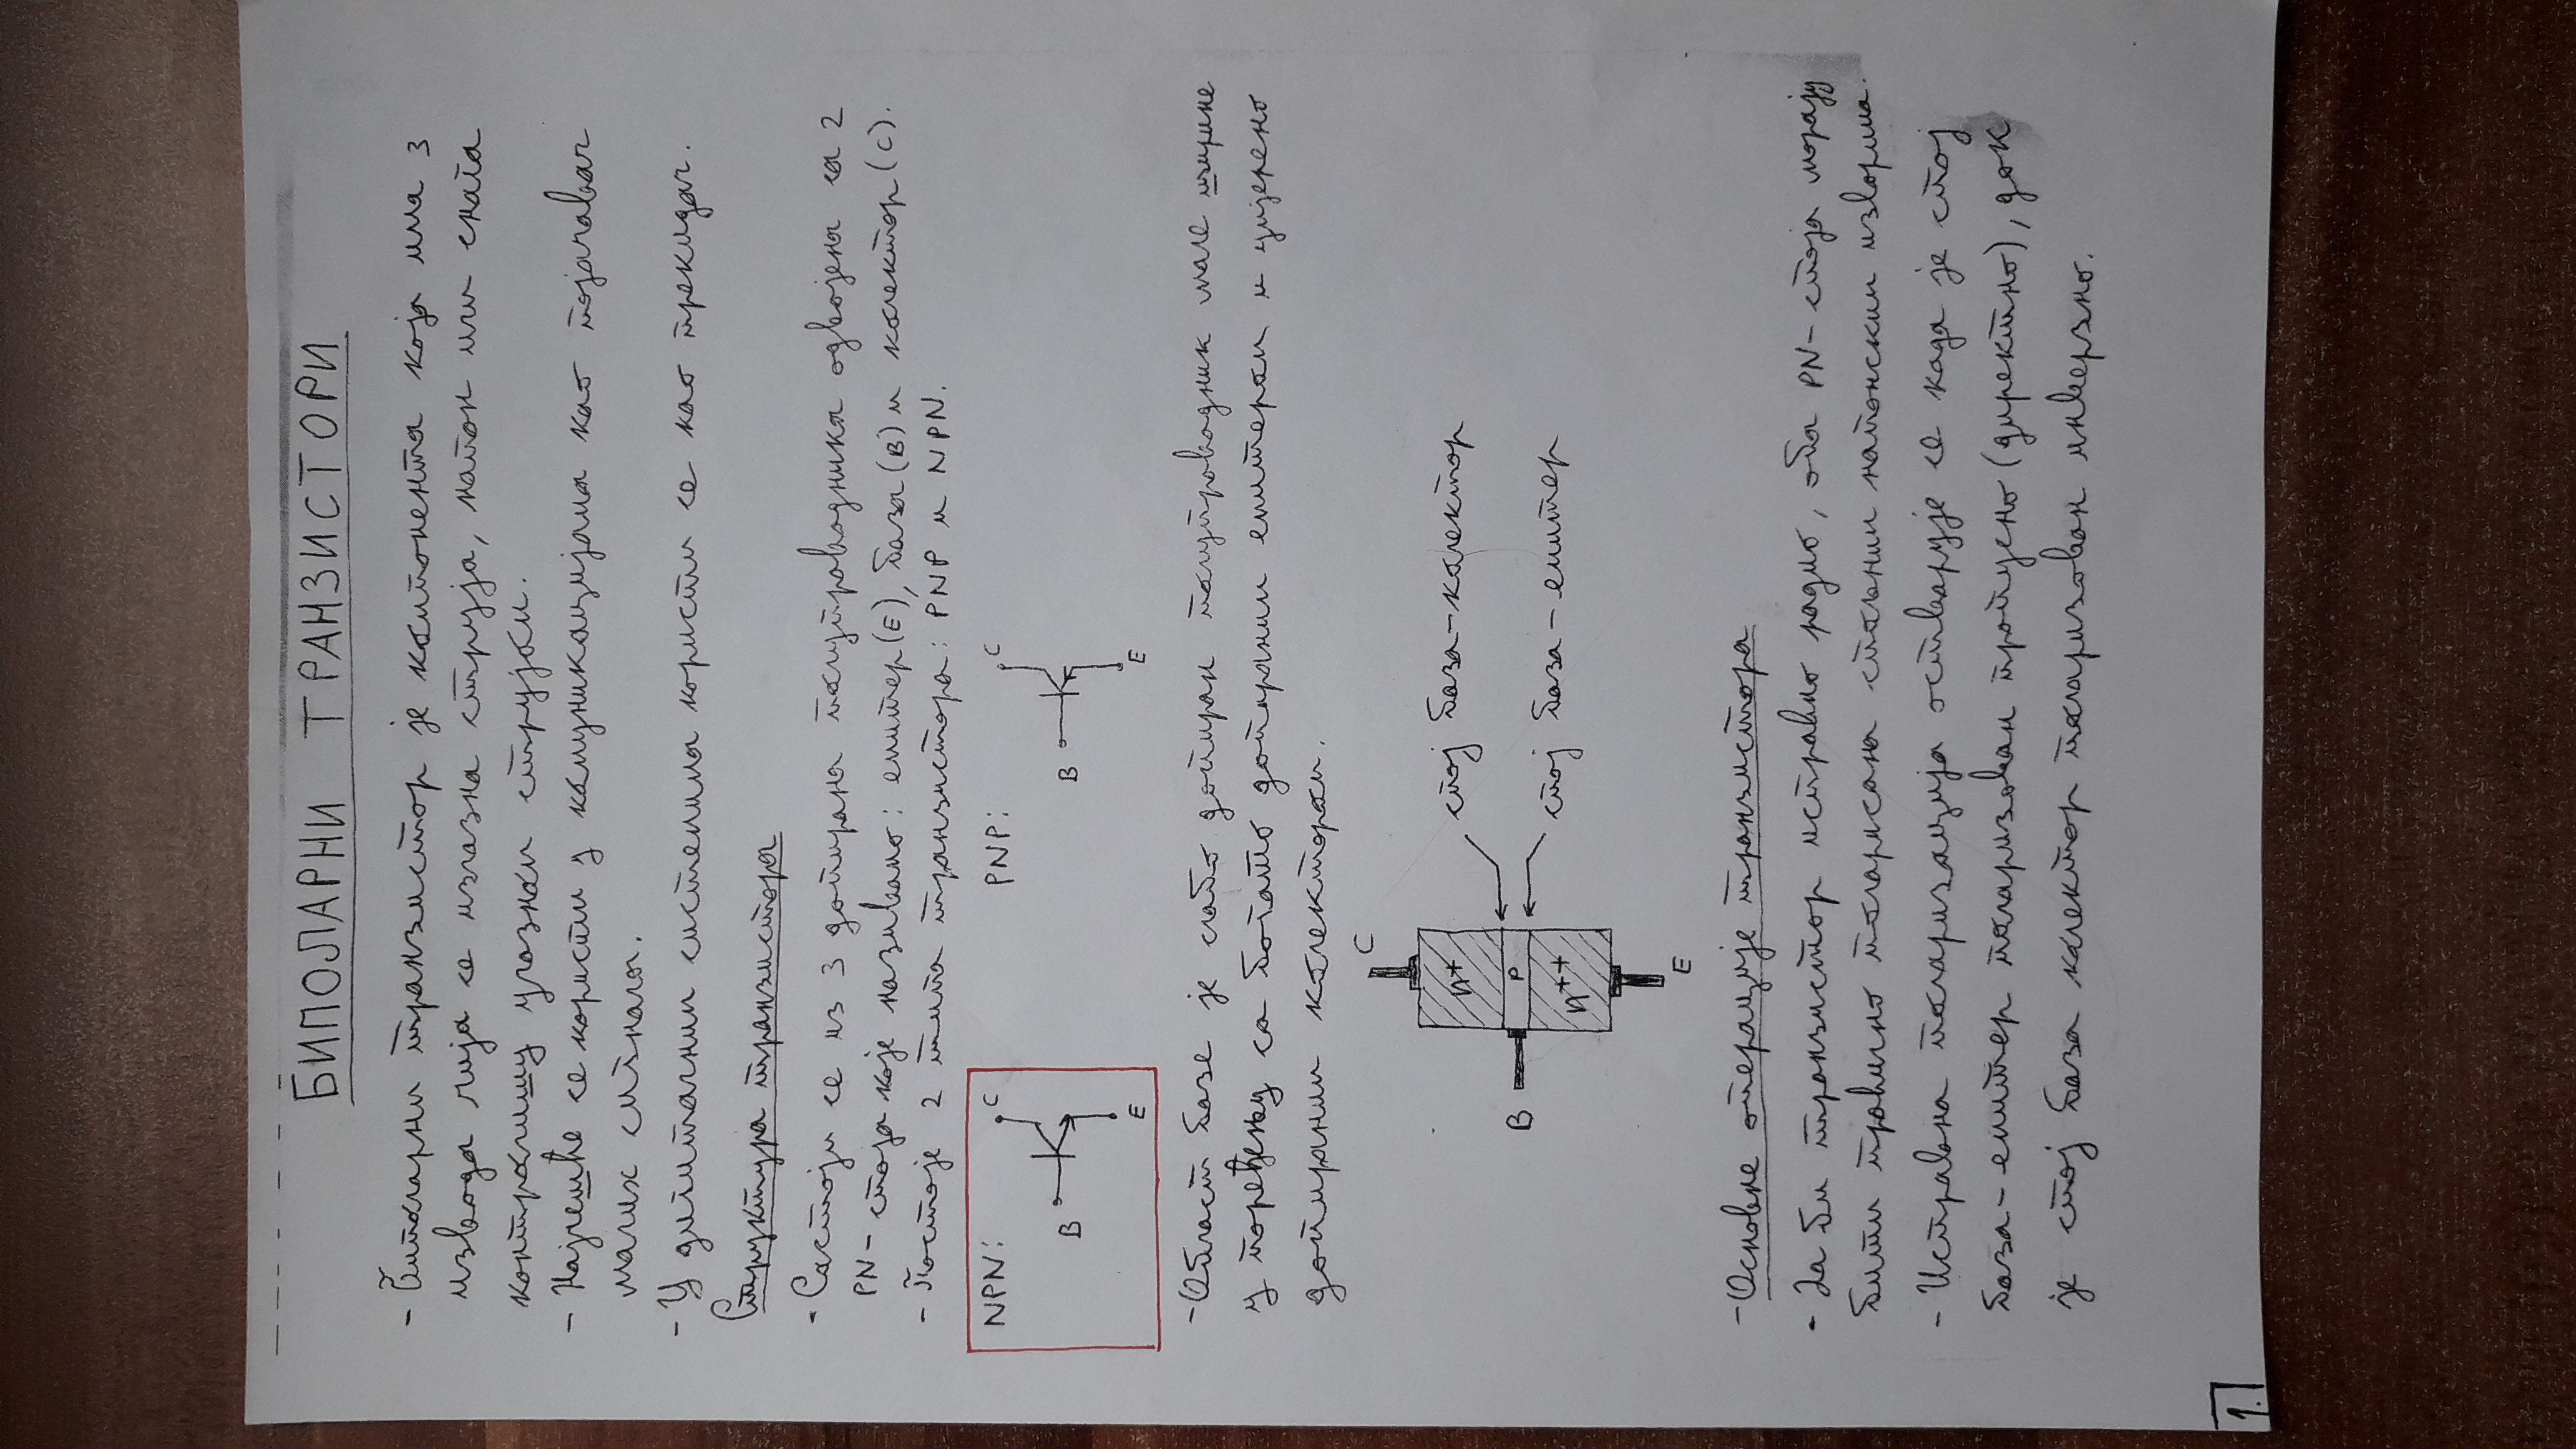 БИПОЛАРНИ ТРАНЗИСТОРИ
- Биполарни транзистор је компонента која има 3
извода чија се излазна струја, напон или снага
контролишу улазном струјом.
- Најчешће се користи у комуникацијама као појачавач
малих сигнала.
- У дигиталним системима користи се као прекидач.
Структура транзистора
- Састоји се из 3 допирана полупроводника одвојена са 2
PN-споја које називамо: емитер(E), база(B) и колектор(C).
- Постоје 2 типа транзистора: PNP и NPN.
NPN:
C
B
E
PNP:
C
B
E
- Област базе је слабо допиран полупроводник мале ширине
у поређењу са богато допираним емитером и умјерено
допираним колектором.
C
n+
спој база-колектор
B
P
спој база-емитер
n++
E
- Основне операције транзистора
- Да би транзистор исправно радио, оба PN-споја морају
бити правилно поларисана спољним напонским изворима.
- Исправна поларизација остварује се када је спој
база-емитер поларизован пропусно (директно), док
је спој база колектор поларизован инверзно.
1.